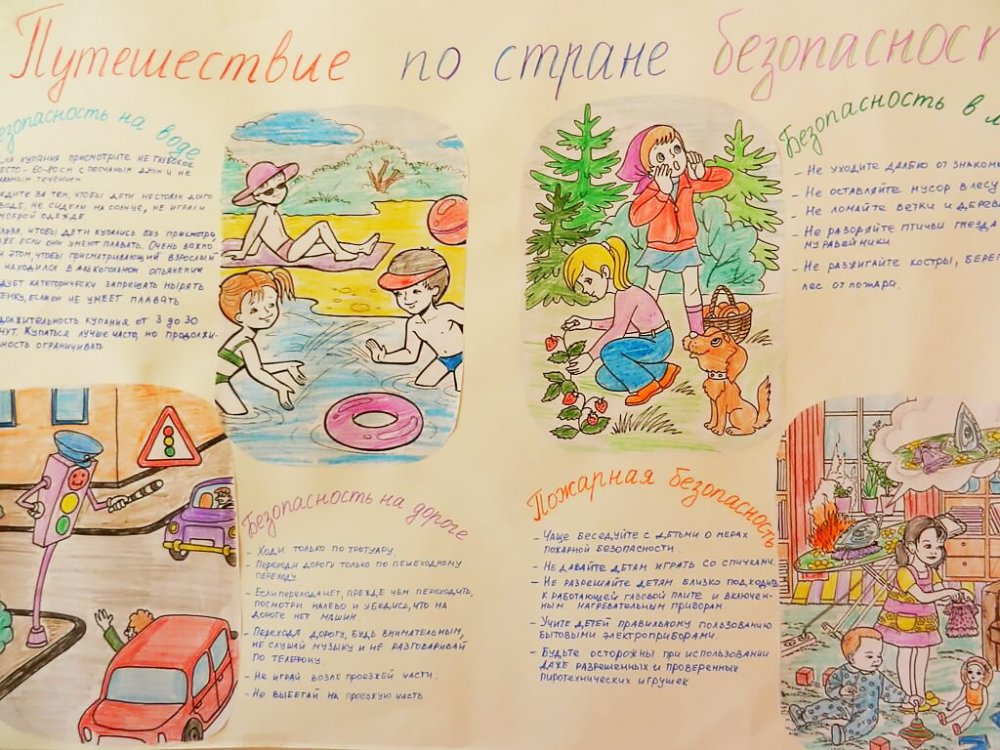 Путешествие по стране безопасност
езопасность на воде
для купания присмотрите не глубокое
место - водоем с песчаным дном и не
течением
едите за тем, чтобы дети не стояли долго
воде, не сидели на солнце, не играли
мокрой одежде
льзя, чтобы дети купались без присмотра,
же если они умеют плавать. Очень важно
и этом, чтобы присматривающий взрослый
находился в алкогольном опьянении
дует категорически запрещать нырять
енку, если он не умеет плавать
должительность купания от 3 до 30
нут. Купаться лучше часто, но продолжи-
ность ограничивать
Безопасность в л
- Не уходите далеко от знаком
- Не оставляйте мусор в лесу
- Не ломайте ветки и дерев
- Не разоряйте птичьи гнезда
муравейники
- Не разжигайте костры, берег
лес от пожара.
Безопасность на дороге
- Ходи только по тротуару
- Переходи дорогу только по пешеходному
переходу.
- Если перехода нет, прежде чем переходить,
посмотри налево и убедись, что на
дороге нет машин.
- Переходя дорогу, будь внимательным,
не слушай музыку и не разговаривай
по телефону.
- Не играй возле проезжей части.
- Не выбегай на проезжую часть
Пожарная безопасность
- Чаще беседуйте с детьми о мерах
пожарной безопасности.
- Не давайте детям играть со спичками.
- Не разрешайте детям близко подходить
к работающей газовой плите и включен-
ным нагревательным приборам.
- Учите детей правильному пользованию
бытовыми электроприборами.
- Будьте осторожны при использовании
даже разрешенных и проверенных
пиротехнических игрушек